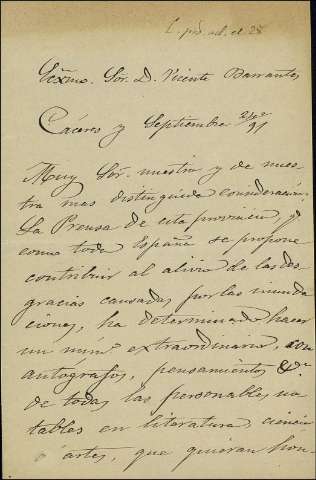 Exmo. Sor. D. Vicente Barrantes
Cáceres y Septiembre 91
Muy Sor. nuestro y de nues
tra mas distinguida consideración:
La Prensa de esta provincia q.
como toda España se propone
contribuir al alivio de las des
gracias causadas por las inunda
ciones, ha determinado hacer
un núm.º extraordinario, con
autógrafos, pensamientos &.ª
de todas las personas no
tables en literatura ciencia
ó ártes, que quieran hon-